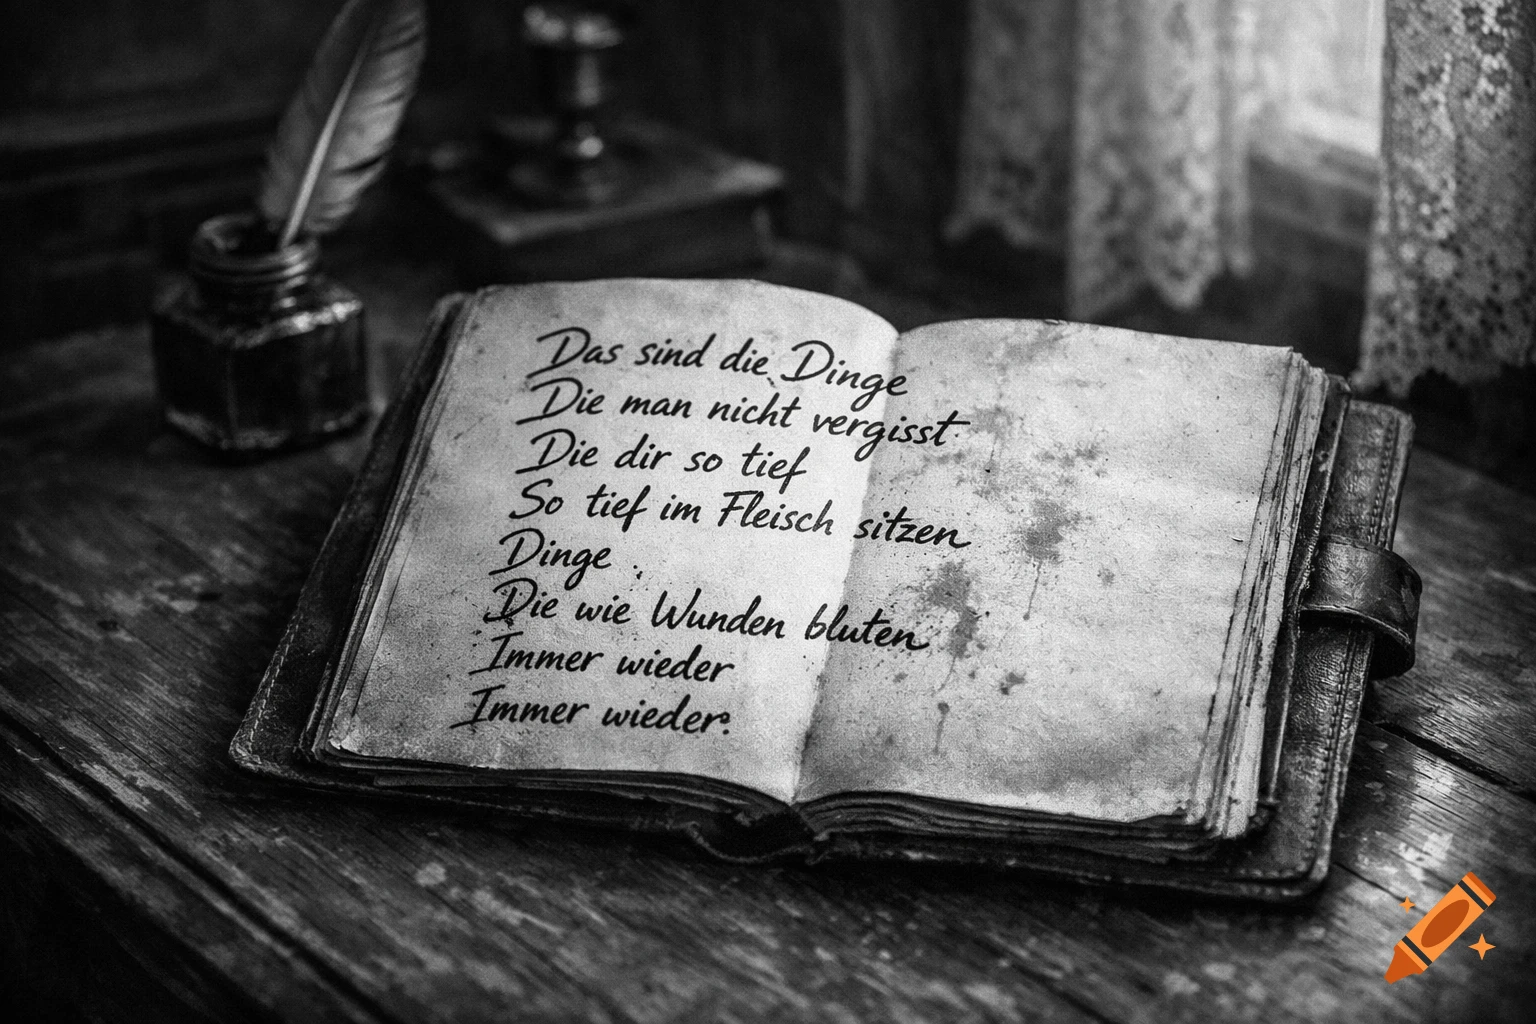 Das sind die Dinge
Die man nicht vergisst
Die dir so tief
So tief im Fleisch sitzen
Dinge
Die wie Wunden bluten
Immer wieder
Immer wieder.